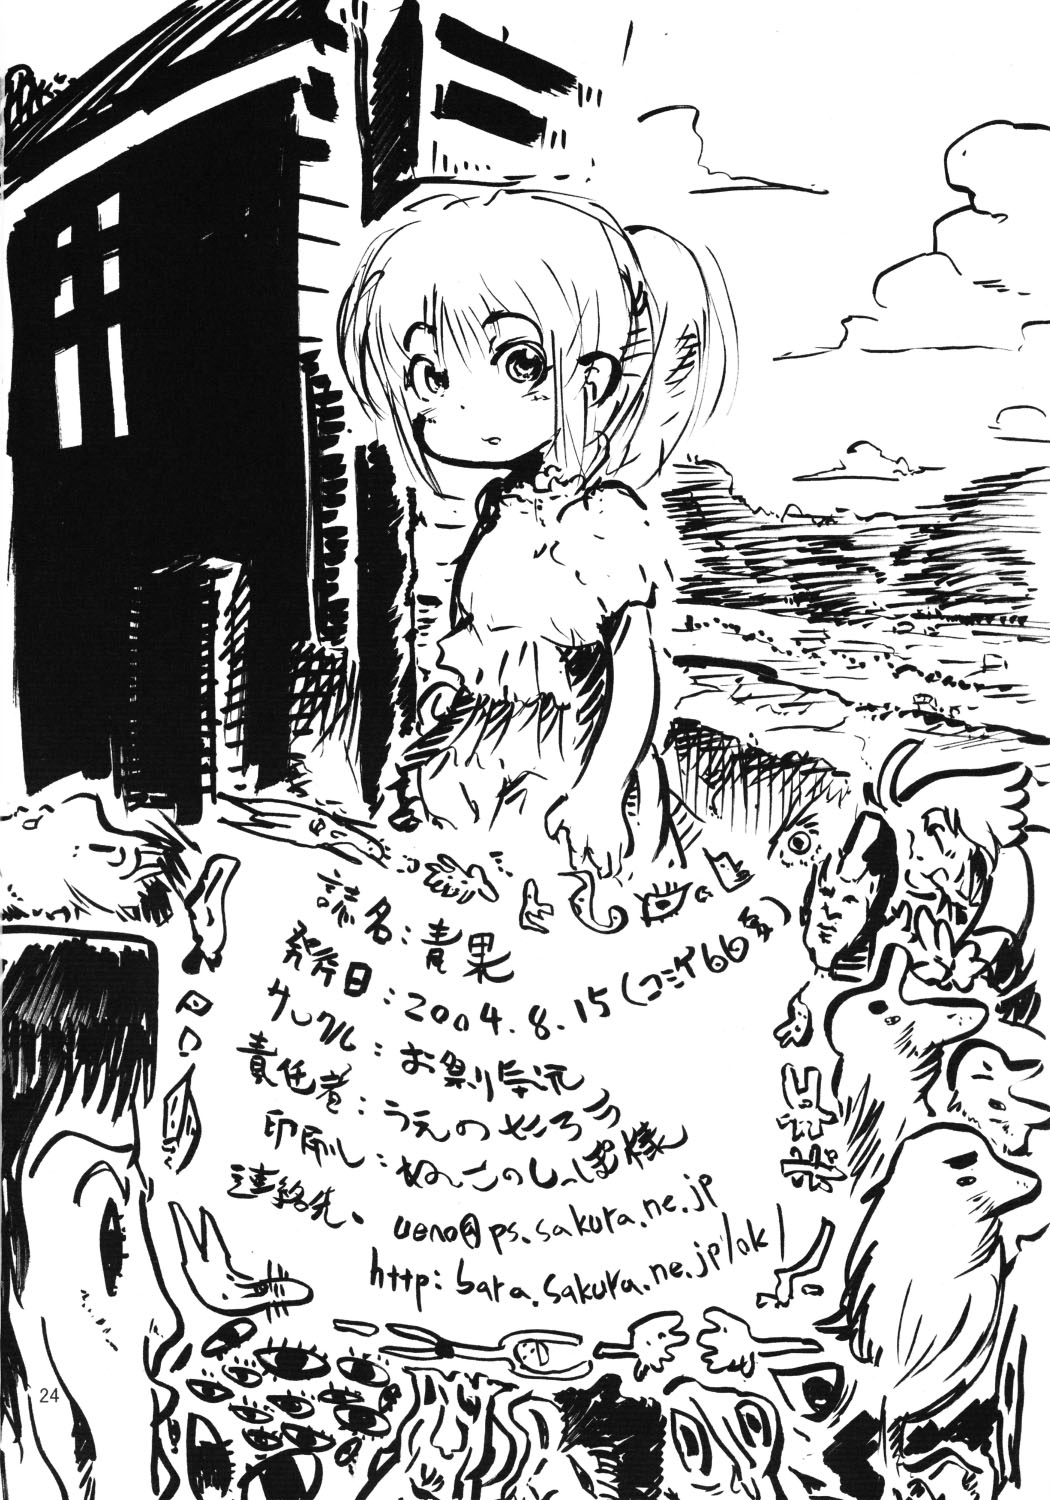 誌名:青果
発行日:2004.8.15(コミケ66日夏)
サークル:お祭り状況
責任者:うえの せころう
印刷:ねこのしっぽ様
連絡先、ueno@ps.sakura.ne.jp
http:bara.sakura.ne.jp/ok/
24